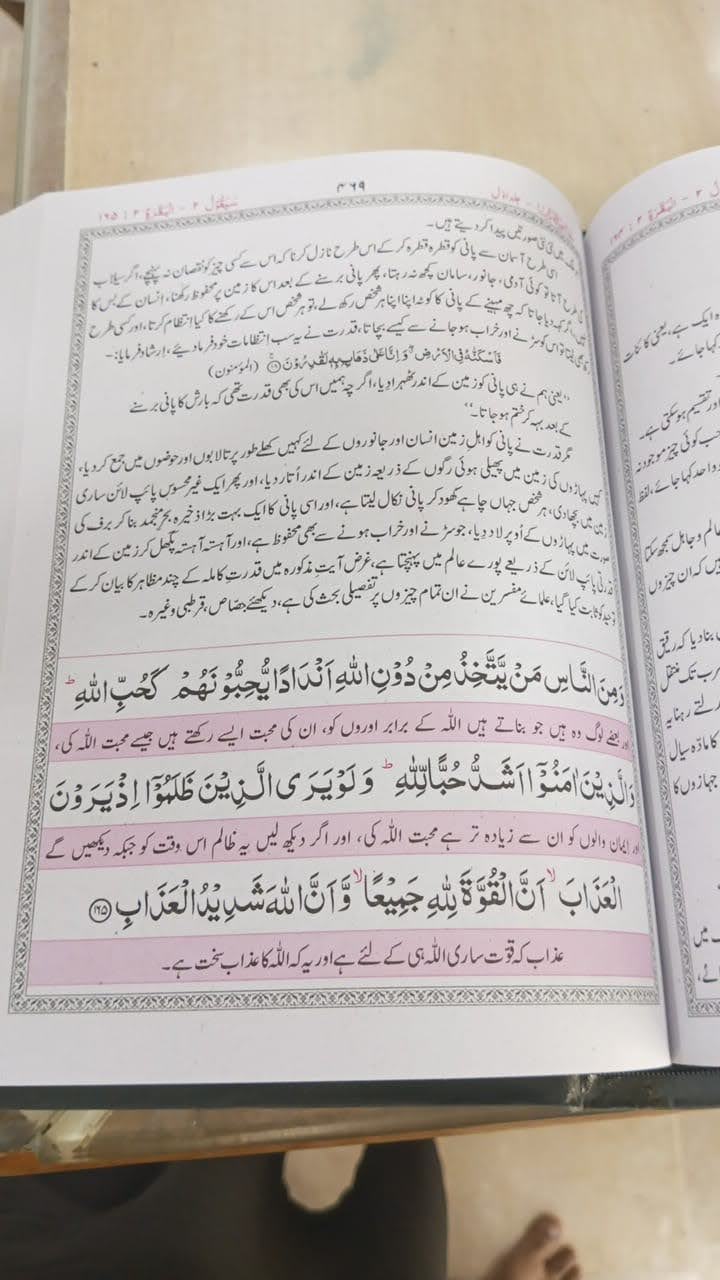 ۴۶۹
سَیَقُولُ ۲ - اَلْبَقَرَۃ ۲ : ۱۶۵
جلد اوّل
صورتیں پیدا کر دیتے ہیں۔
اسی طرح آسمان سے پانی کو قطرہ قطرہ کر کے اس طرح نازل کرنا کہ اس سے کسی چیز کو نقصان نہ پہنچے، اگر سیلاب
کی طرح آتا تو کوئی آدمی، جانور، سامان کچھ نہ رہتا، پھر پانی برسنے کے بعد اس کا زمین پر محفوظ رکھنا، انسان کے بس کا
نہیں، اگر کہہ دیا جاتا کہ چھ مہینے کے پانی کا کوٹہ اپنا اپنا ہر شخص رکھ لے، تو ہر شخص اس کے رکھنے کا کیا انتظام کرتا، اور کسی طرح
رکھ بھی لیتا تو اس کو سڑنے اور خراب ہو جانے سے کیسے بچاتا، قدرت نے یہ سب انتظامات خود فرما دیئے، ارشاد فرمایا:۔
فَاَسْكَنّٰهُ فِی الْاَرْضِ وَاِنَّا عَلٰی ذَهَابٍۭ بِهٖ لَقٰدِرُوْنَ ﴿۱۸﴾ (المؤمنون)
”یعنی ہم نے ہی پانی کو زمین کے اندر ٹھہرا دیا، اگرچہ ہمیں اس کی بھی قدرت تھی کہ بارش کا پانی برسنے
کے بعد بہہ کر ختم ہو جاتا۔“
مگر قدرت نے پانی کو اہلِ زمین انسان اور جانوروں کے لئے کہیں کھلے طور پر تالابوں اور حوضوں میں جمع کر دیا،
کہیں پہاڑوں کی زمین میں پھیلی ہوئی رگوں کے ذریعہ زمین کے اندر اُتار دیا، اور پھر ایک غیر محسوس پائپ لائن ساری
زمین میں بچھا دی، ہر شخص جہاں چاہے کھود کر پانی نکال لیتا ہے، اور اسی پانی کا ایک بہت بڑا ذخیرہ بحرِ منجمد بنا کر برف کی
صورت میں پہاڑوں کے اُوپر لاد دیا، جو سڑنے اور خراب ہونے سے بھی محفوظ ہے، اور آہستہ آہستہ پگھل کر زمین کے اندر
قدرتی پائپ لائن کے ذریعے پورے عالم میں پہنچتا ہے، غرض آیتِ مذکورہ میں قدرتِ کاملہ کے چند مظاہر کا بیان کر کے
توحید کو ثابت کیا گیا، علمائے مفسرین نے ان تمام چیزوں پر تفصیلی بحث کی ہے، دیکھئے جصاص، قرطبی وغیرہ۔
وَمِنَ النَّاسِ مَنْ يَّتَّخِذُ مِنْ دُوْنِ اللّٰهِ اَنْدَادًا يُّحِبُّوْنَهُمْ كَحُبِّ اللّٰهِ ؕ
اور بعضے لوگ وہ ہیں جو بناتے ہیں اللہ کے برابر اوروں کو، ان کی محبت ایسے رکھتے ہیں جیسے محبت اللہ کی،
وَالَّذِيْنَ اٰمَنُوْۤا اَشَدُّ حُبًّا لِّلّٰهِ ؕ وَلَوْ يَرَى الَّذِيْنَ ظَلَمُوْۤا اِذْ يَرَوْنَ
اور ایمان والوں کو ان سے زیادہ تر ہے محبت اللہ کی، اور اگر دیکھ لیں یہ ظالم اس وقت کو جبکہ دیکھیں گے
الْعَذَابَ ۙ اَنَّ الْقُوَّةَ لِلّٰهِ جَمِيْعًا ۙ وَّاَنَّ اللّٰهَ شَدِيْدُ الْعَذَابِ ﴿۱۶۵﴾
عذاب کہ قوّت ساری اللہ ہی کے لئے ہے اور یہ کہ اللہ کا عذاب سخت ہے۔